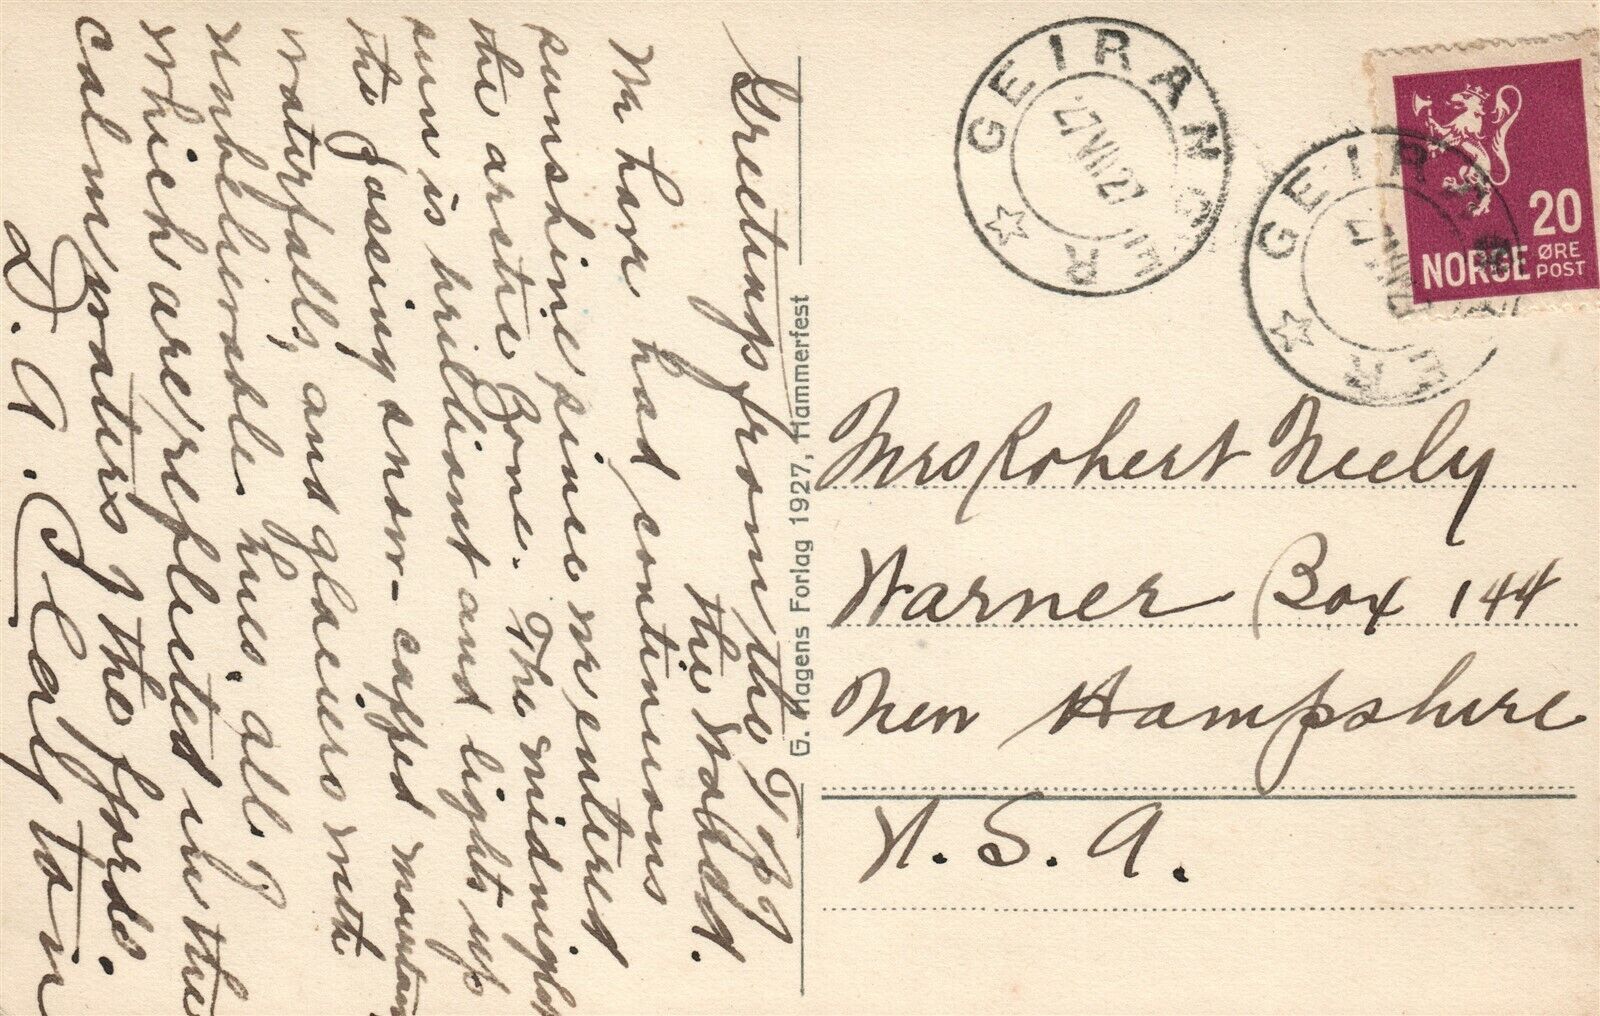 Greetings from the Top of
the World.
We have had continuous
sunshine since we entered
the arctic Zone. The midnight
sun is brilliant and lights up
the passing snow-capped mountains
waterfalls, and glaciers with
unbelievable hues, all of
which are reflected in the
calm waters of the fjords.
D. A. Clayton
G. Hagens Forlag 1927, Hammerfest
GEIRANGER
27 VII 27
GEIRANGER
27 VII 27
20
NORGE ØRE
POST
Mrs Robert Neely
Warner Box 144
New Hampshire
U. S. A.